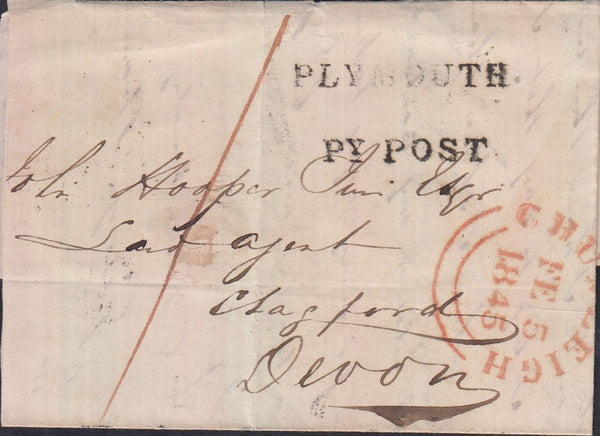 PLYMOUTH
PY POST
John Hooper Jun Esqr
Land agent
Chagford
Devon
CHUDLEIGH
FE 5
1845